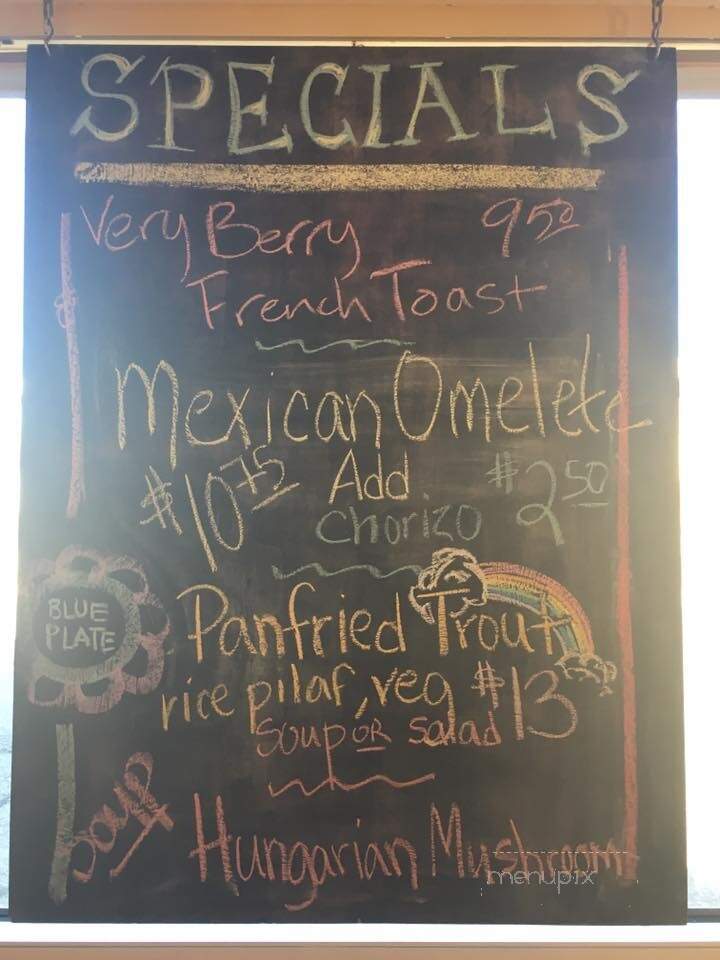 SPECIALS
Very Berry 9 50
French Toast
Mexican Omelete
$10 75 Add $2 50
chorizo
BLUE
PLATE
Panfried Trout
rice pilaf, veg $13
soup OR salad
soup
Hungarian Mushroom
menupix